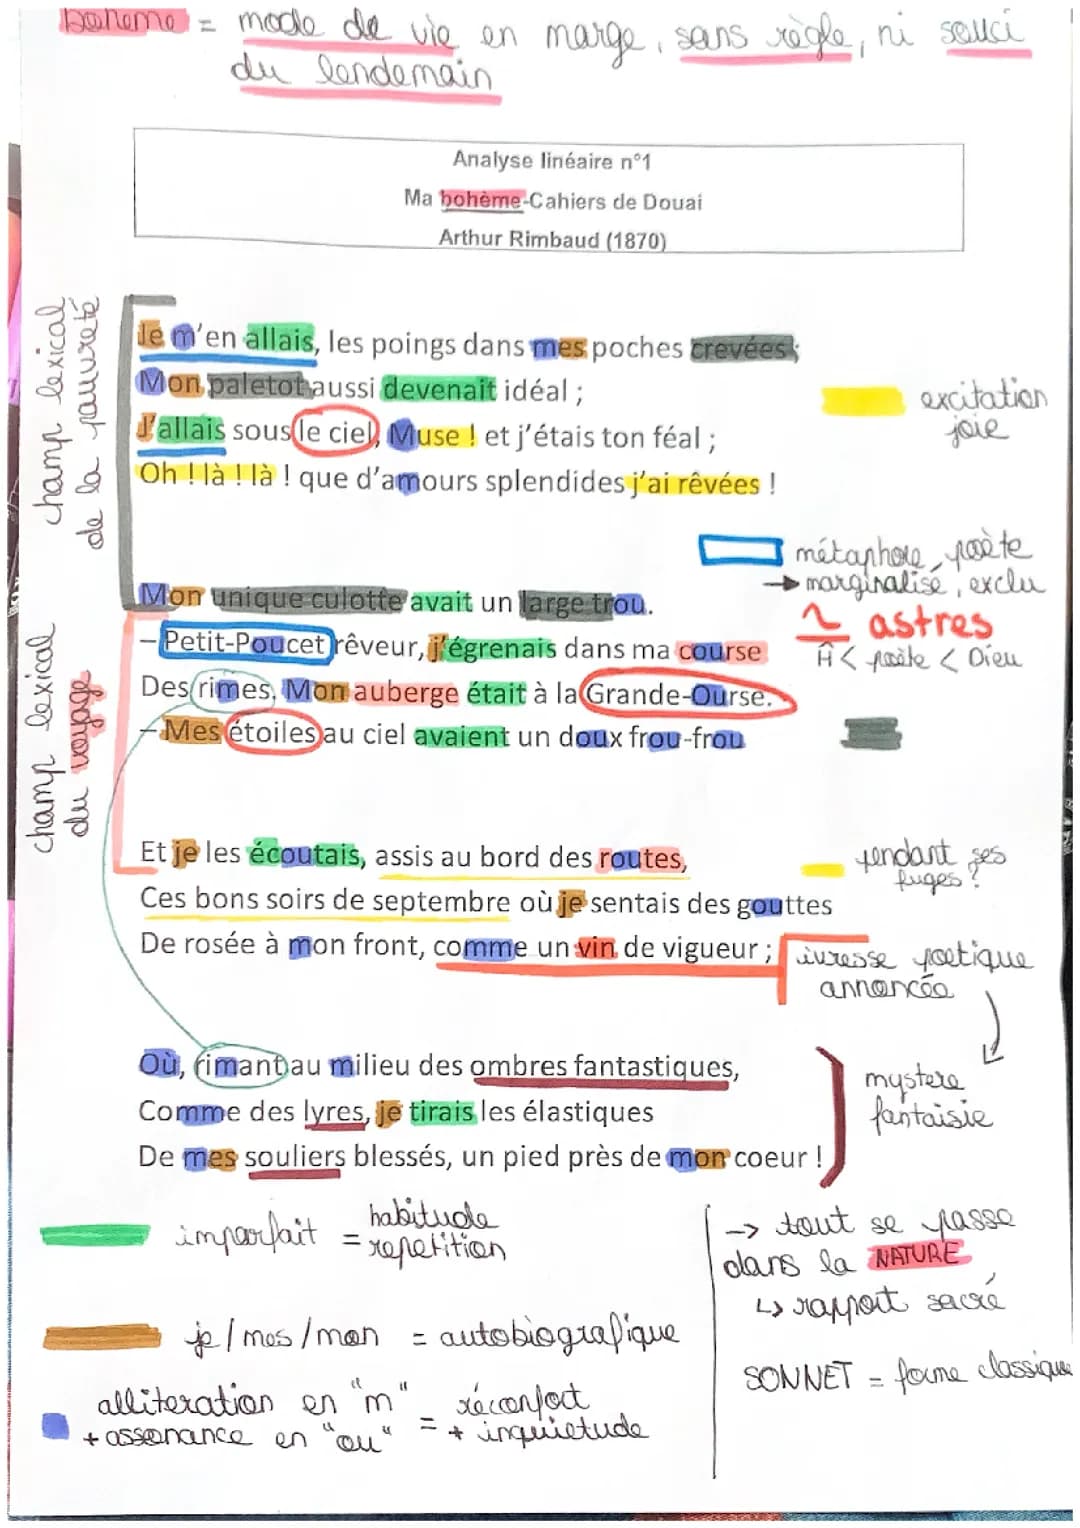 bohème = mode de vie en marge, sans règle, ni souci
du lendemain
Analyse linéaire n°1
Ma bohème-Cahiers de Douai
Arthur Rimbaud (1870)
champ lexical
de la pauvreté
Je m'en allais, les poings dans mes poches crevées ;
Mon paletot aussi devenait idéal ;
J'allais sous le ciel, Muse ! et j'étais ton féal ;
Oh ! là ! là ! que d'amours splendides j'ai rêvées !
excitation
joie
métaphore, poète
→ marginalisé, exclu
astres
Ĥ < poète < Dieu
champ lexical
du voyage
Mon unique culotte avait un large trou.
– Petit-Poucet rêveur, j'égrenais dans ma course
Des rimes. Mon auberge était à la Grande-Ourse.
– Mes étoiles au ciel avaient un doux frou-frou
Et je les écoutais, assis au bord des routes,
Ces bons soirs de septembre où je sentais des gouttes
De rosée à mon front, comme un vin de vigueur ;
pendant ses
fuges ?
ivresse poetique
annoncée
Où, rimant au milieu des ombres fantastiques,
Comme des lyres, je tirais les élastiques
De mes souliers blessés, un pied près de mon coeur !
mystere
fantaisie
imparfait = habitude
repetition
je / mes / mon = autobiografique
alliteration en "m" = réconfort
+ assonance en "ou" + inquietude
-> tout se passe
dans la NATURE
↳ rapport sacré
SONNET = forme classique